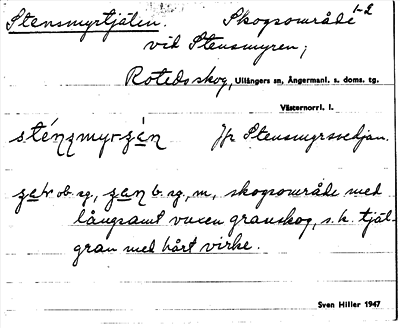 Stensmyrtjälen. Skogsområde 1-2
vid Stensmyren;
Rotedsskog, Ullångers sn, Ångermanl. s. doms. tg.
Västernorrl. l.
Jfr Stensmyrssvedjan.
ob. sg., b. sg., m., skogsområde med
långsamt vuxen granskog, s.k. tjäl-
gran med hårt virke.
Sven Hiller 1947